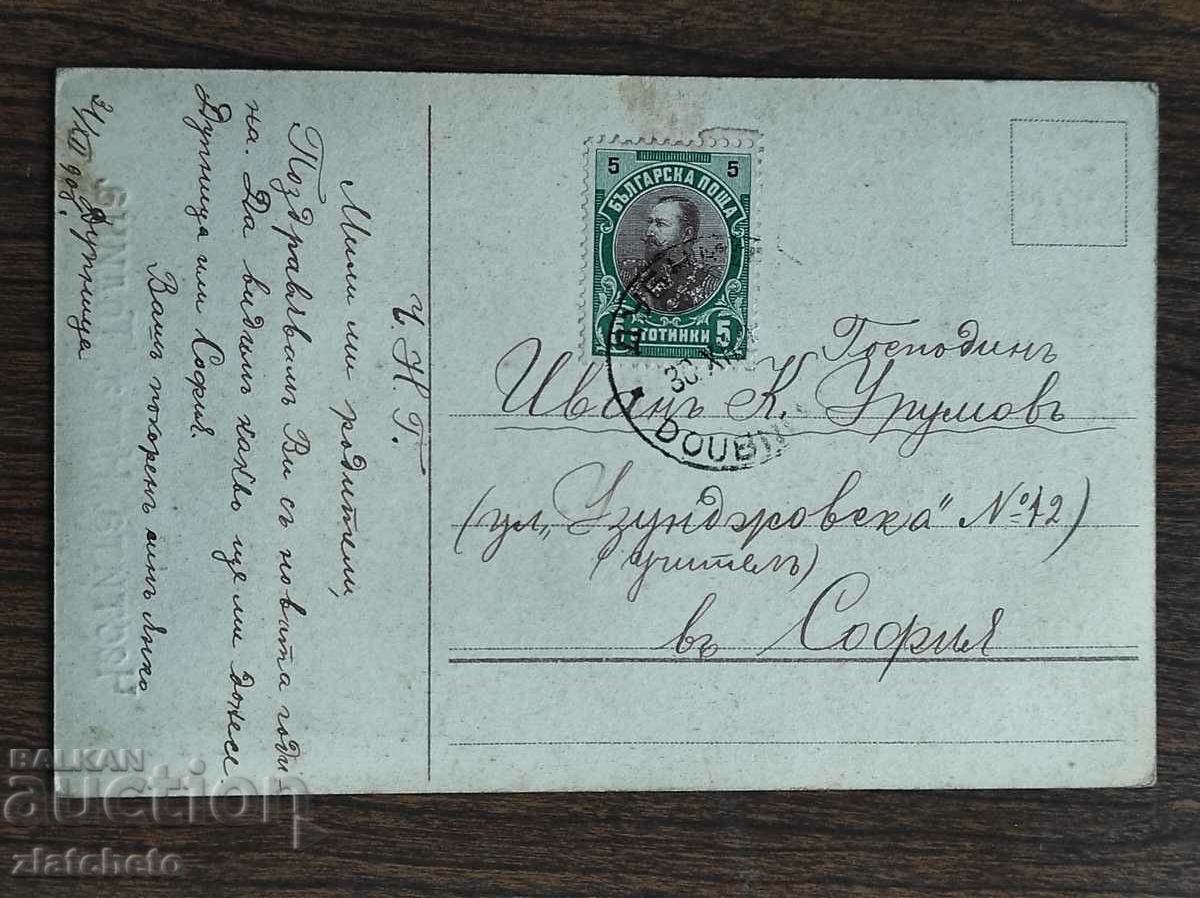 Ч. Н. Г.
Мили ми родители,
Поздравявамъ Ви съ новата годи-
на. Да видимъ какво ще ми донесе
Дупница или София.
Вашъ покоренъ синъ Янко
Дупница
5 5
БЪЛГАРСКА ПОЩА
5 СТОТИНКИ 5
DOUBNI
Господинъ
Иванъ К. Урумовъ
(ул. „Узунджовска“ № 42)
(учитель)
въ София
BALKAN
auction
zlatcheto